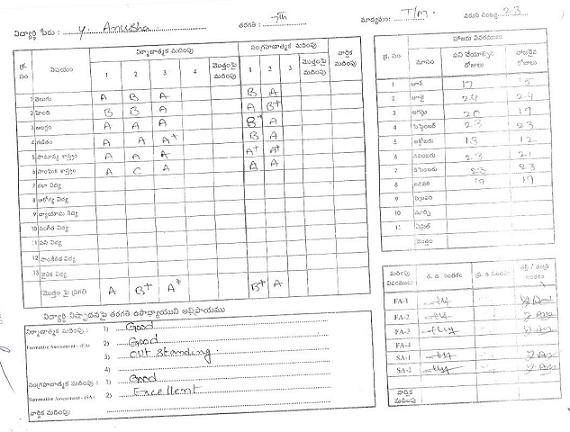 విద్యార్థి పేరు : Y. Anusha తరగతి : 7th మాధ్యమం : T/M. వరుస సంఖ్య 23
నిర్మాణాత్మక మదింపు సంగ్రహణాత్మక మదింపు వార్షిక మదింపు
క్ర. సం విషయం 1 2 3 4 మొత్తంపై మదింపు 1 2 3 మొత్తంపై మదింపు
1 తెలుగు A B A B A
2 హిందీ B B A A B+
3 ఆంగ్లం A A A B+ A
4 గణితం A A A+ B A
5 సామాన్య శాస్త్రం A A A A+ A+
6 సాంఘిక శాస్త్రం A C A A A
7 కళా విద్య
8 ఆరోగ్య విద్య
9 వ్యాయామ విద్య
10 సంగీత విద్య
11 పని విద్య
12
13 విద్య
మొత్తం పై ప్రగతి A B+ A+ B+ A
హాజరు వివరములు
క్ర. సం మాసం పని చేయాల్సిన రోజులు హాజరైన రోజులు
1 జూన్ 17 15
2 జూలై 24 24
3 ఆగష్టు 20 19
4 సెప్టెంబర్ 23 23
5 అక్టోబరు 13 12
6 నవంబరు 23 21
7 డిసెంబరు 23 23
8 జనవరి 19
9 ఫిబ్రవరి
10 మార్చి
11 ఏప్రిల్
మొత్తం
మదింపు వివరములు
FA-1
FA-2
FA-3
FA-4
SA-1
SA-2
వార్షిక మదింపు
విద్యార్థి నిష్పాదనపై తరగతి ఉపాధ్యాయుని అభిప్రాయము
నిర్మాణాత్మక మదింపు : 1) Good
Formative Assessment - (FA) 2) Good
3) out standing.
4)
సంగ్రహణాత్మక మదింపు : 1) Good
Summative Assessment - (SA) 2) Excellent
వార్షిక మదింపు: